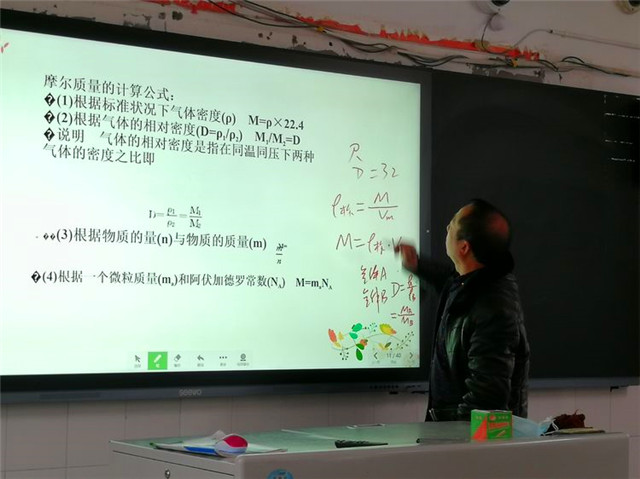 摩尔质量的计算公式：
�(1)根据标准状况下气体密度(ρ) M=ρ×22.4
�(2)根据气体的相对密度(D=ρ₁/ρ₂) M₁/M₂=D
�说明 气体的相对密度是指在同温同压下两种
气体的密度之比即
D=ρ₁/ρ₂=M₁/M₂
��(3)根据物质的量(n)与物质的质量(m)
�(4)根据一个微粒质量(mₐ)和阿伏加德罗常数(Nₐ) M=mₐNₐ
D=32
ρ标=M/Vm
M=ρ标·V
气体A
气体B D=
=MA/MB
11 / 40